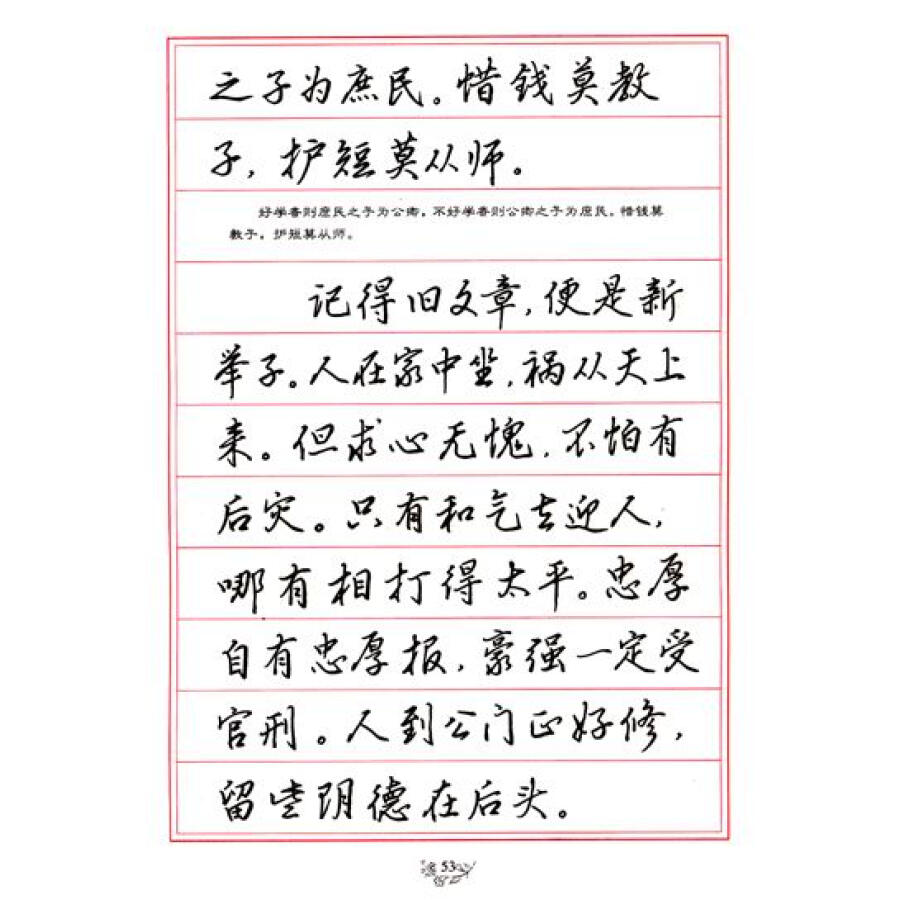 之子为庶民。惜钱莫教
子，护短莫从师。
好学者则庶民之子为公卿，不好学者则公卿之子为庶民。惜钱莫
教子，护短莫从师。
记得旧文章，便是新
举子。人在家中坐，祸从天上
来。但求心无愧，不怕有
后灾。只有和气去迎人，
哪有相打得太平。忠厚
自有忠厚报，豪强一定受
官刑。人到公门正好修，
留些阴德在后头。
53